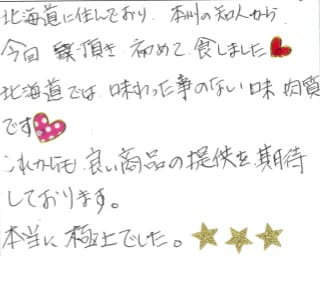 北海道に住んでおり、本州の知人から
今回 頂き 初めて 食しました
北海道では 味わった事のない味 肉質
です
これからも 良い商品の提供を期待
しております。
本当に 極上でした。